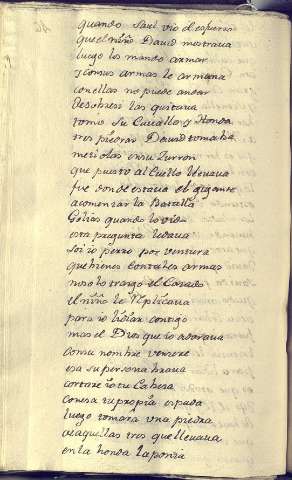 quando Saul vio el esfuerso
que el niño David mostrava
luego los mando armar
y con sus armas le armava
con ellas no puede andar
Des ohres las quitava
tomo su Cavallo y Honda
tres piedras David tomaba
metiolas en su Zurron
que puesto al Cuello llevava
fue donde estava el gigante
a comenzar la Batalla
Golias quando lo vido
esta pregunta le dava
soi io perro por ventura
que bienes con tales armas
no so lo traigo el Caiado
el niño le Replicava
para io lidiar contigo
mas el Dios que io adorava
con su nombre vensere
esa su persona brava
cortare io tu Cabesa
con esa tu propia espada
luego tomara vna piedra
de aquellas tres que llevava
en la honda la ponia